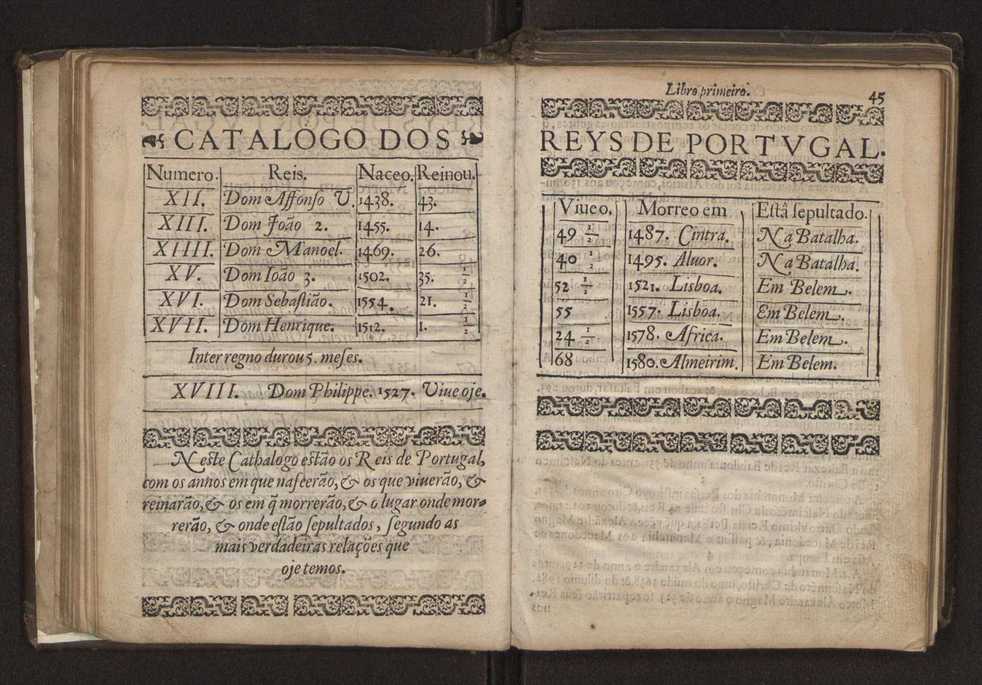 CATALOGO DOS
Numero. Reis. Naceo. Reinou.
XII. Dom Affonso V. 1438. 43.
XIII. Dom João 2. 1455. 14.
XIIII. Dom Manoel. 1469. 26.
XV. Dom Ioão 3. 1502. 35. 1/2
XVI. Dom Sebaſtião. 1554. 21. 1/2
XVII. Dom Henrique. 1512. 1. 1/2
Inter regno durou 5. meſes.
XVIII. Dom Philippe. 1527. Viue oje.
Neſte Cathalogo eſtão os Reis de Portugal,
com os annos em que naſcerão, & os que viuerão, &
reinarão, & os em q̃ morrerão, & o lugar onde mor-
rerão, & onde eſtão ſepultados, ſegundo as
mais verdadeiras relações que
oje temos.
Libro primeiro. 45
REYS DE PORTVGAL.
Viueo. Morreo em Eſtâ ſepultado.
49 1/2 1487. Cintra. Na Batalha.
40 1/2 1495. Aluor. Na Batalha.
52 1/2 1521. Lisboa. Em Belem.
55 1557. Lisboa. Em Belem.
24 1/2 1578. Africa. Em Belem.
68 1580. Almeirim. Em Belem.